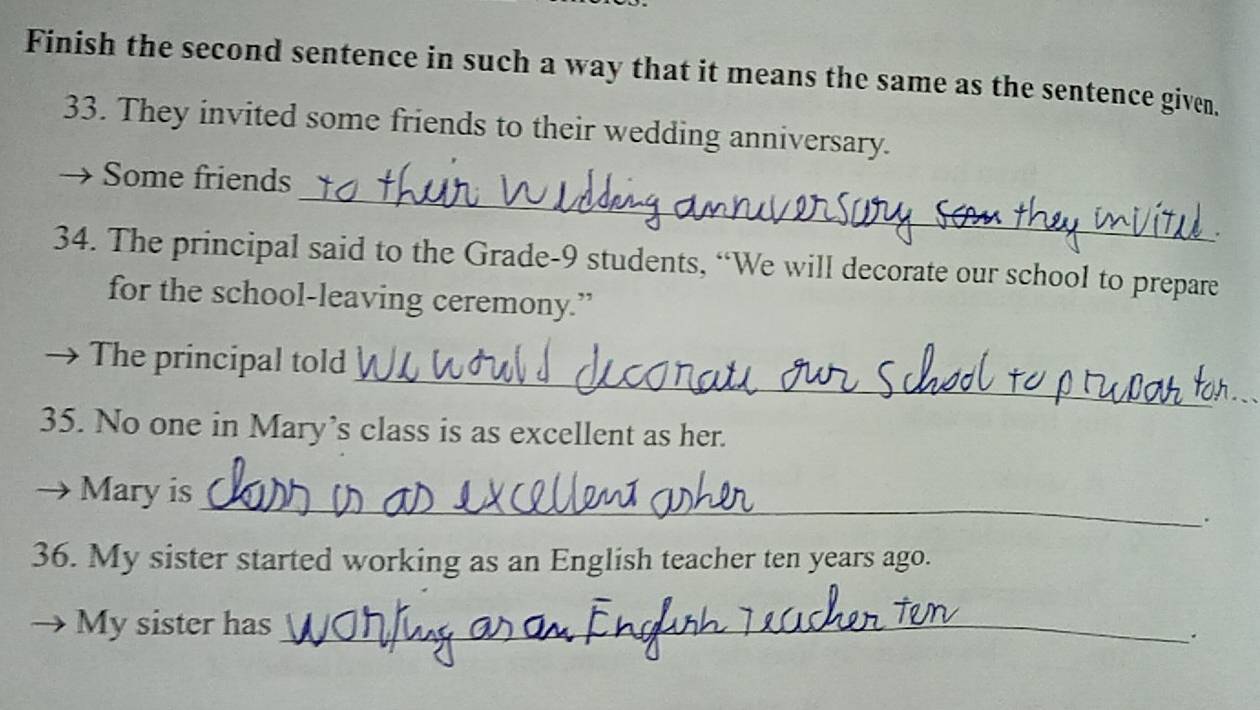 Finish the second sentence in such a way that it means the same as the sentence given.
33. They invited some friends to their wedding anniversary.
→ Some friends to their wedding anniversary they invited.
34. The principal said to the Grade-9 students, “We will decorate our school to prepare
for the school-leaving ceremony.”
→ The principal told We would decorate our school to prepar for...
35. No one in Mary’s class is as excellent as her.
→ Mary is class is as excellent as her.
36. My sister started working as an English teacher ten years ago.
→ My sister has working as an English teacher ten.